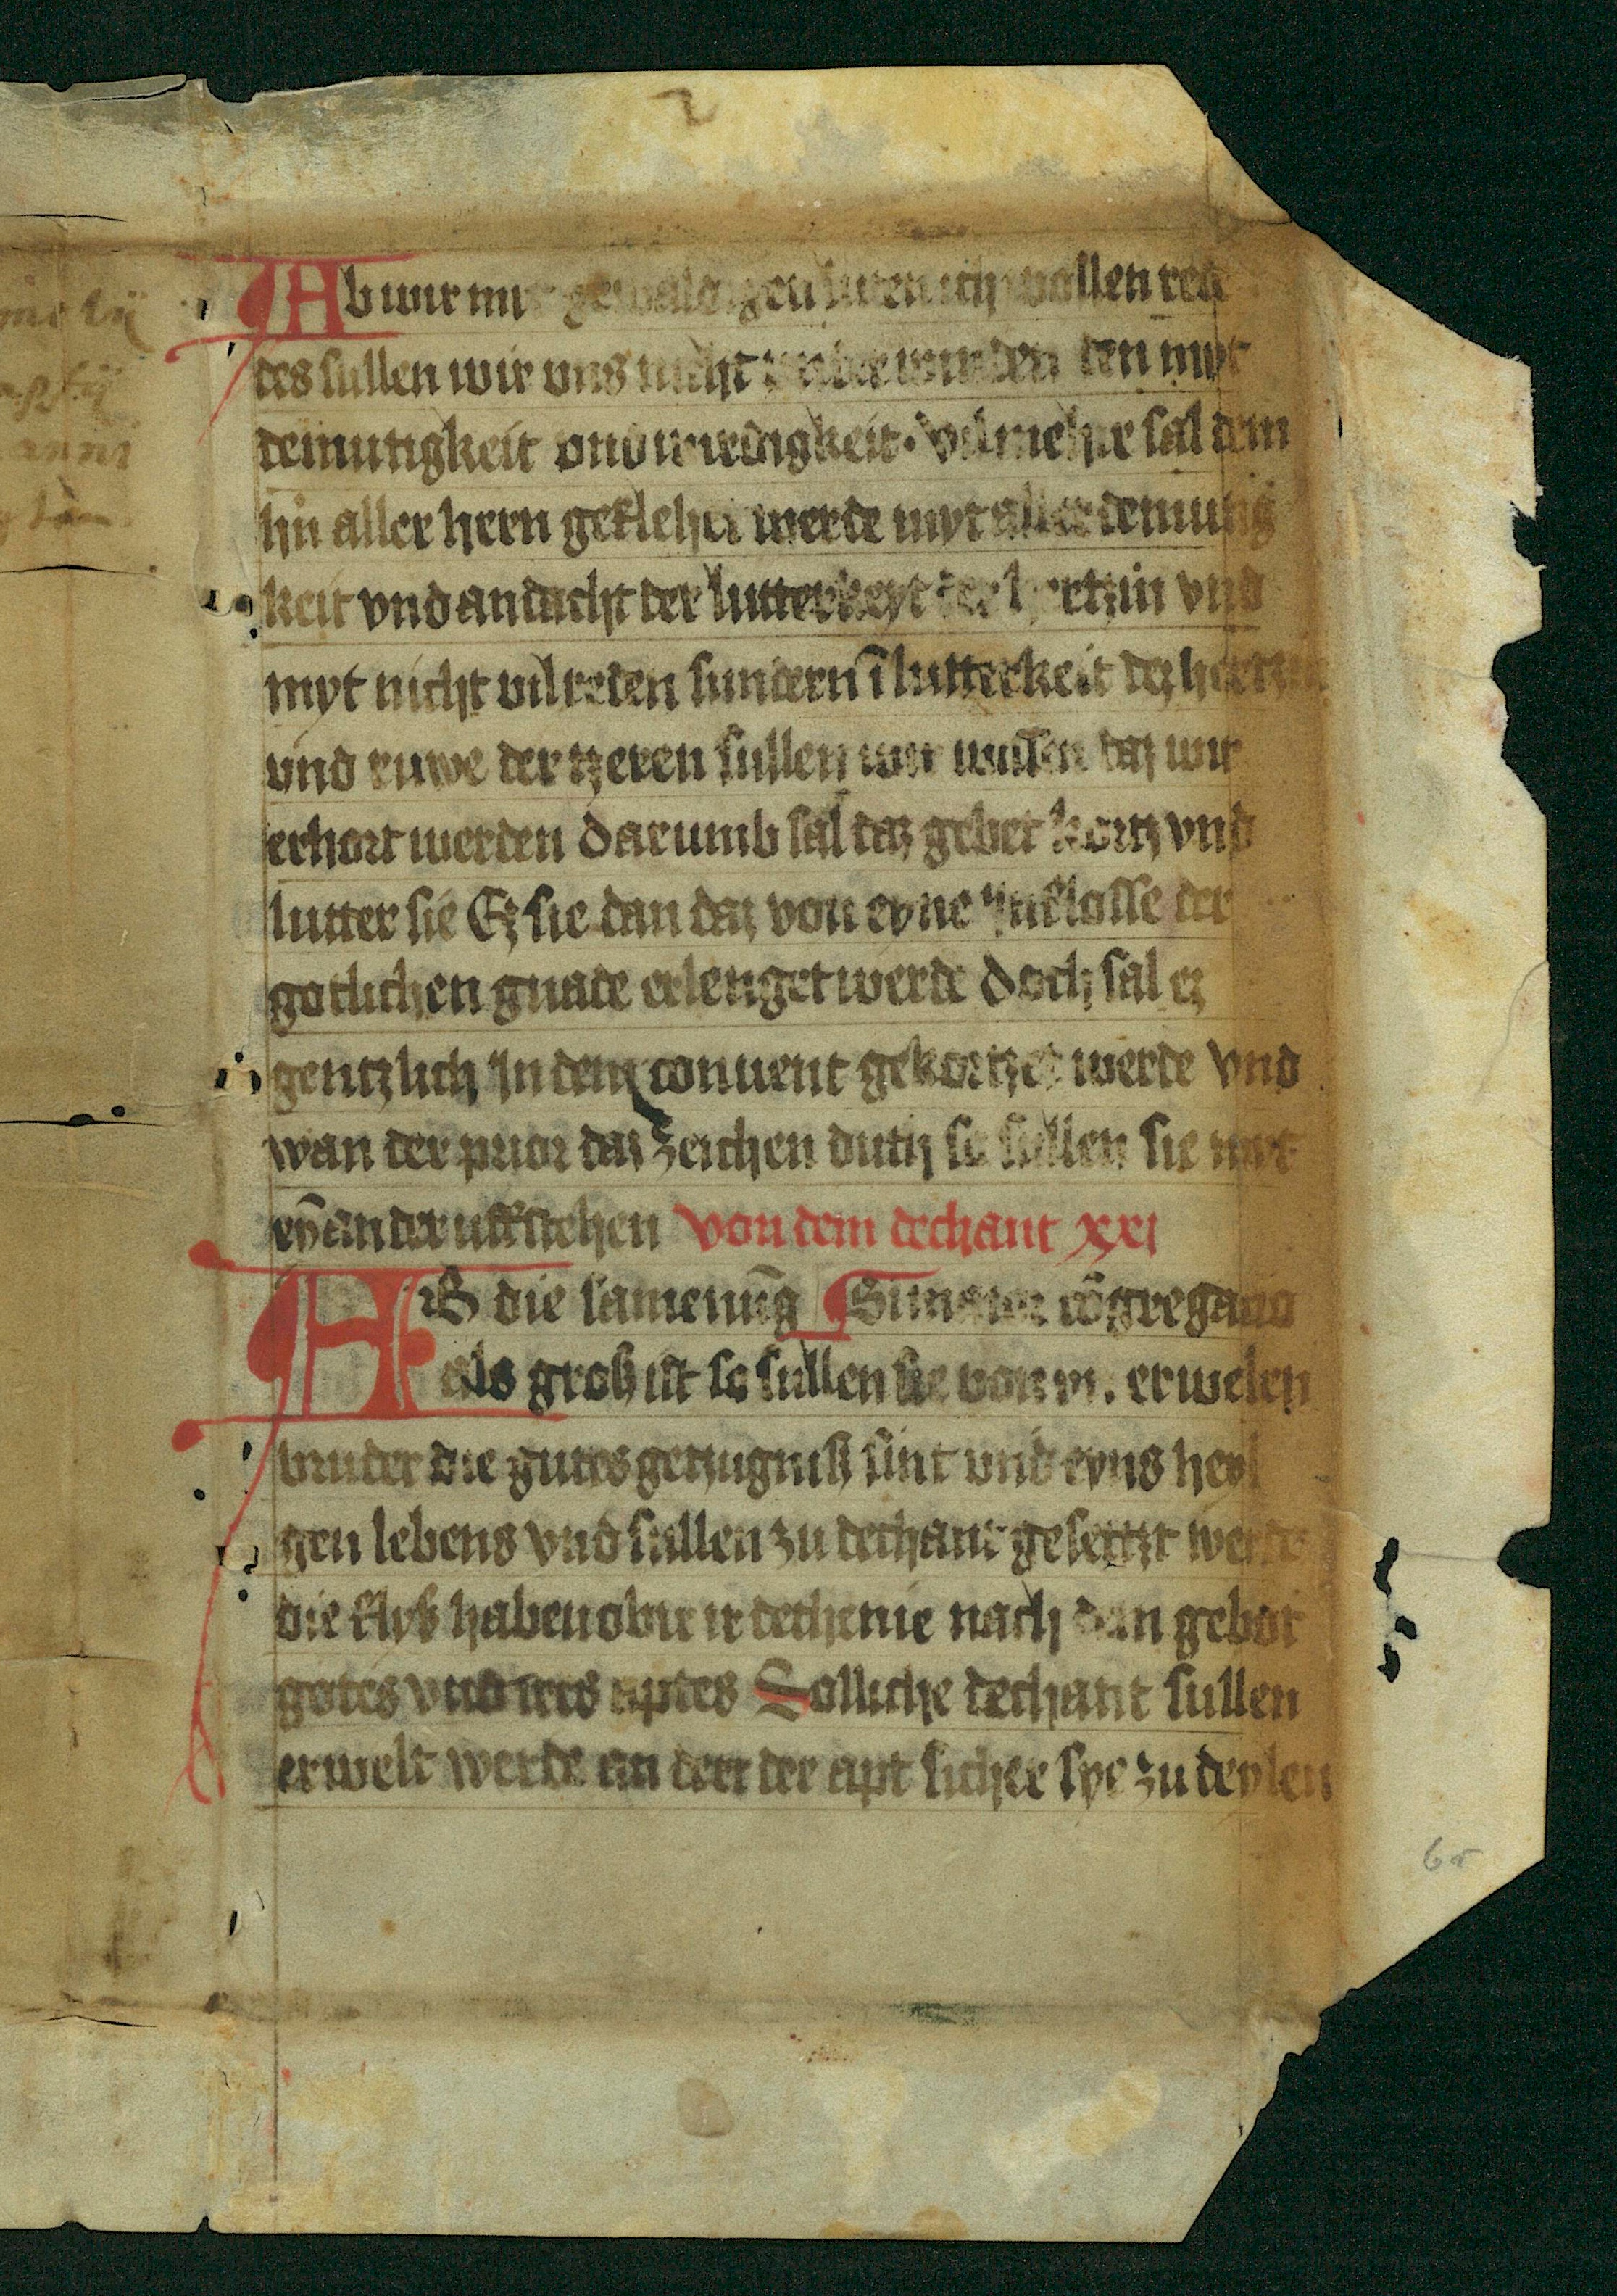 2
Ab wir mit gewaldigen luten ich wollen red
des sullen wir vns nicht vnderwinden den myt
demutigkeit vnd wirdigkeit · Vil mehir sal dem
hn aller hern geflehet werde myt aller demutig
keit vnd andacht der lutterkeyt der hertzin vnd
myt nicht vil reden sundern ī lutterkeit dez hertzin
vnd ruwe der tzeren sullen wir wissen daz wir
erhort werden Darumb sal daz gebet kortz vnd
lutter sie Ez sie dan daz von eyne Inflosse der
gotlichen gnade erlenget werde Doch sal ez
gentzlich In dem conuent gekortzet werde Vnd
wan der prior daz zeichen duth so sullen sie myt
eȳander uffstehen Von dem dechant xxi
AB die samenūg Si maior cōgregatio
als groß ist so sullen sie von yn . erwelen
bruder die gutes getzugniß sint vnd eyns heyl
gen lebens Vnd sullen zu dechant gesetzt werde
die flyß haben obir ir dechenie nach dem gebot
gotes vnd irs aptes Solliche dechant sullen
erwelt werde an den der apt sicher sye zu deylen
6r